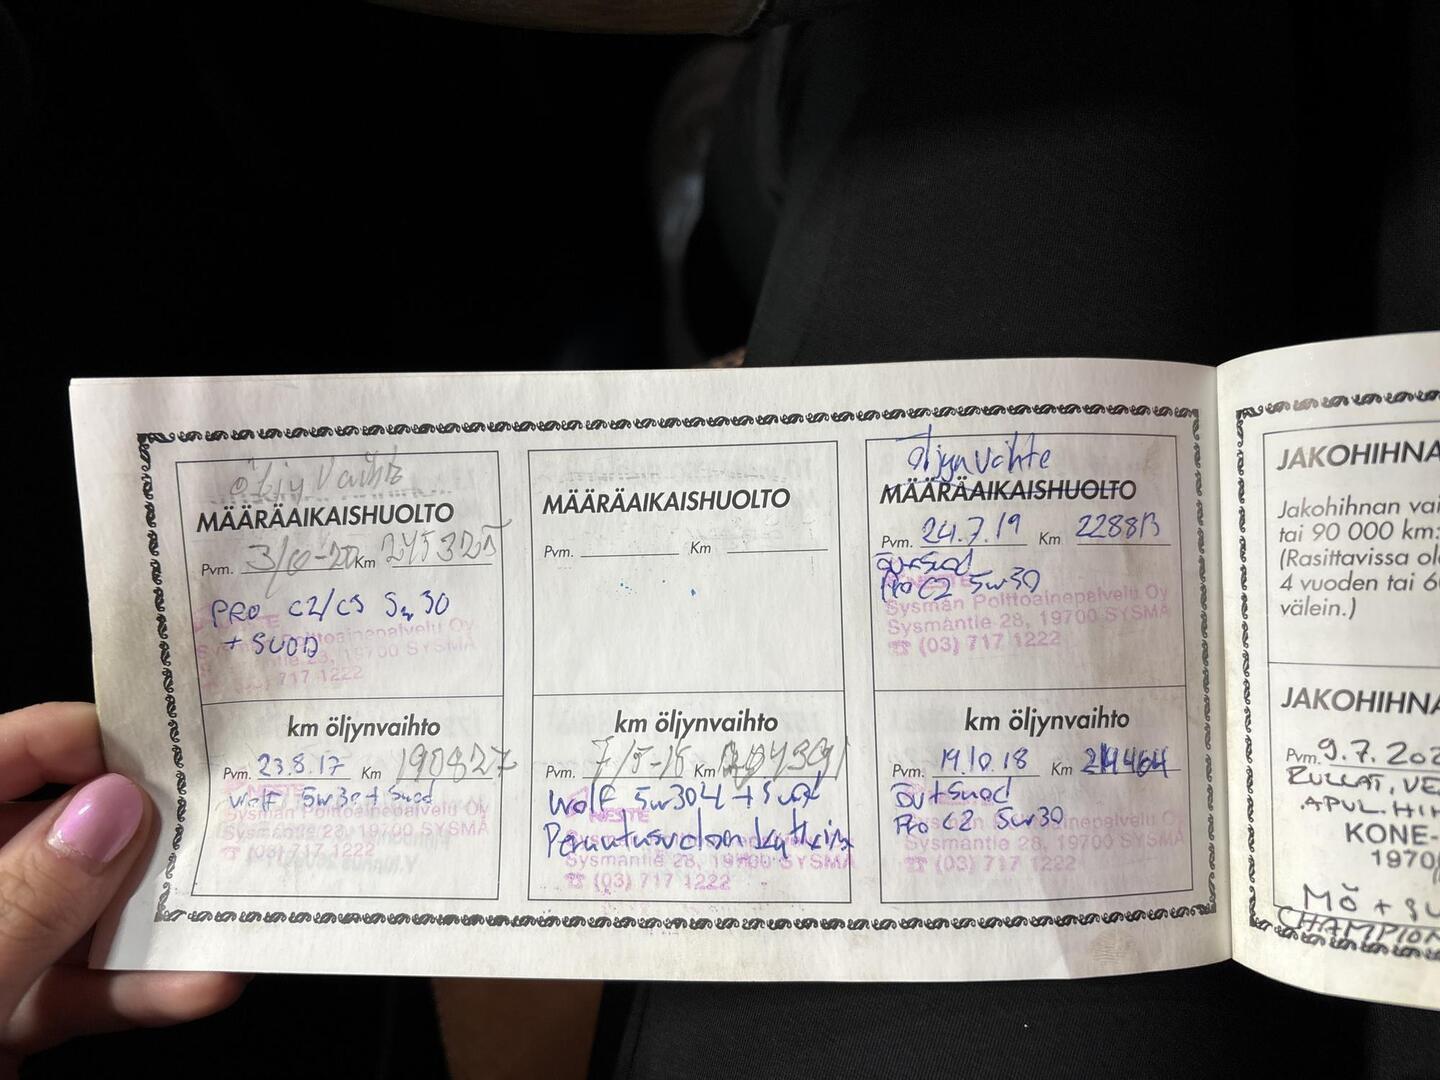 Öljy Vaihto
MÄÄRÄAIKAISHUOLTO
Pvm. 3/10-20 Km 245325
PRO C2/C3 5w30
+ SUOD
Sysmän Polttoainepalvelu Oy
Sysmäntie 23, 19700 SYSMÄ
717 1222
km öljynvaihto
Pvm. 23.8.17 Km 190827
Wolf 5w30 + Suod
Sysmän Polttoainepalvelu Oy
Sysmäntie 23, 19700 SYSMÄ
☎ (03) 717 1222
MÄÄRÄAIKAISHUOLTO
Pvm. Km
km öljynvaihto
Pvm. 7/5-18 Km
Wolf 5w30 4L + Suod
NESTE
Sysmäntie 23, 19700 SYSMÄ
☎ (03) 717 1222
Öljynvaihto
MÄÄRÄAIKAISHUOLTO
Pvm. 24.7.19 Km 228813
Öv+Suod
Pro C2 5w30
NESTE
Sysmän Polttoainepalvelu Oy
Sysmäntie 23, 19700 SYSMÄ
☎ (03) 717 1222
km öljynvaihto
Pvm. 19.10.18 Km 214464
Öv+Suod
Pro C2 5w30
Sysmän Polttoainepalvelu Oy
Sysmäntie 23, 19700 SYSMÄ
☎ (03) 717 1222
JAKOHIHNA
Jakohihnan vai
tai 90 000 km:
(Rasittavissa ol
4 vuoden tai 6
välein.)
JAKOHIHNA
Pvm. 9.7.202
RULLAT, VE
APUL.HIH
KONE-
1970
MÖ + SU
CHAMPION